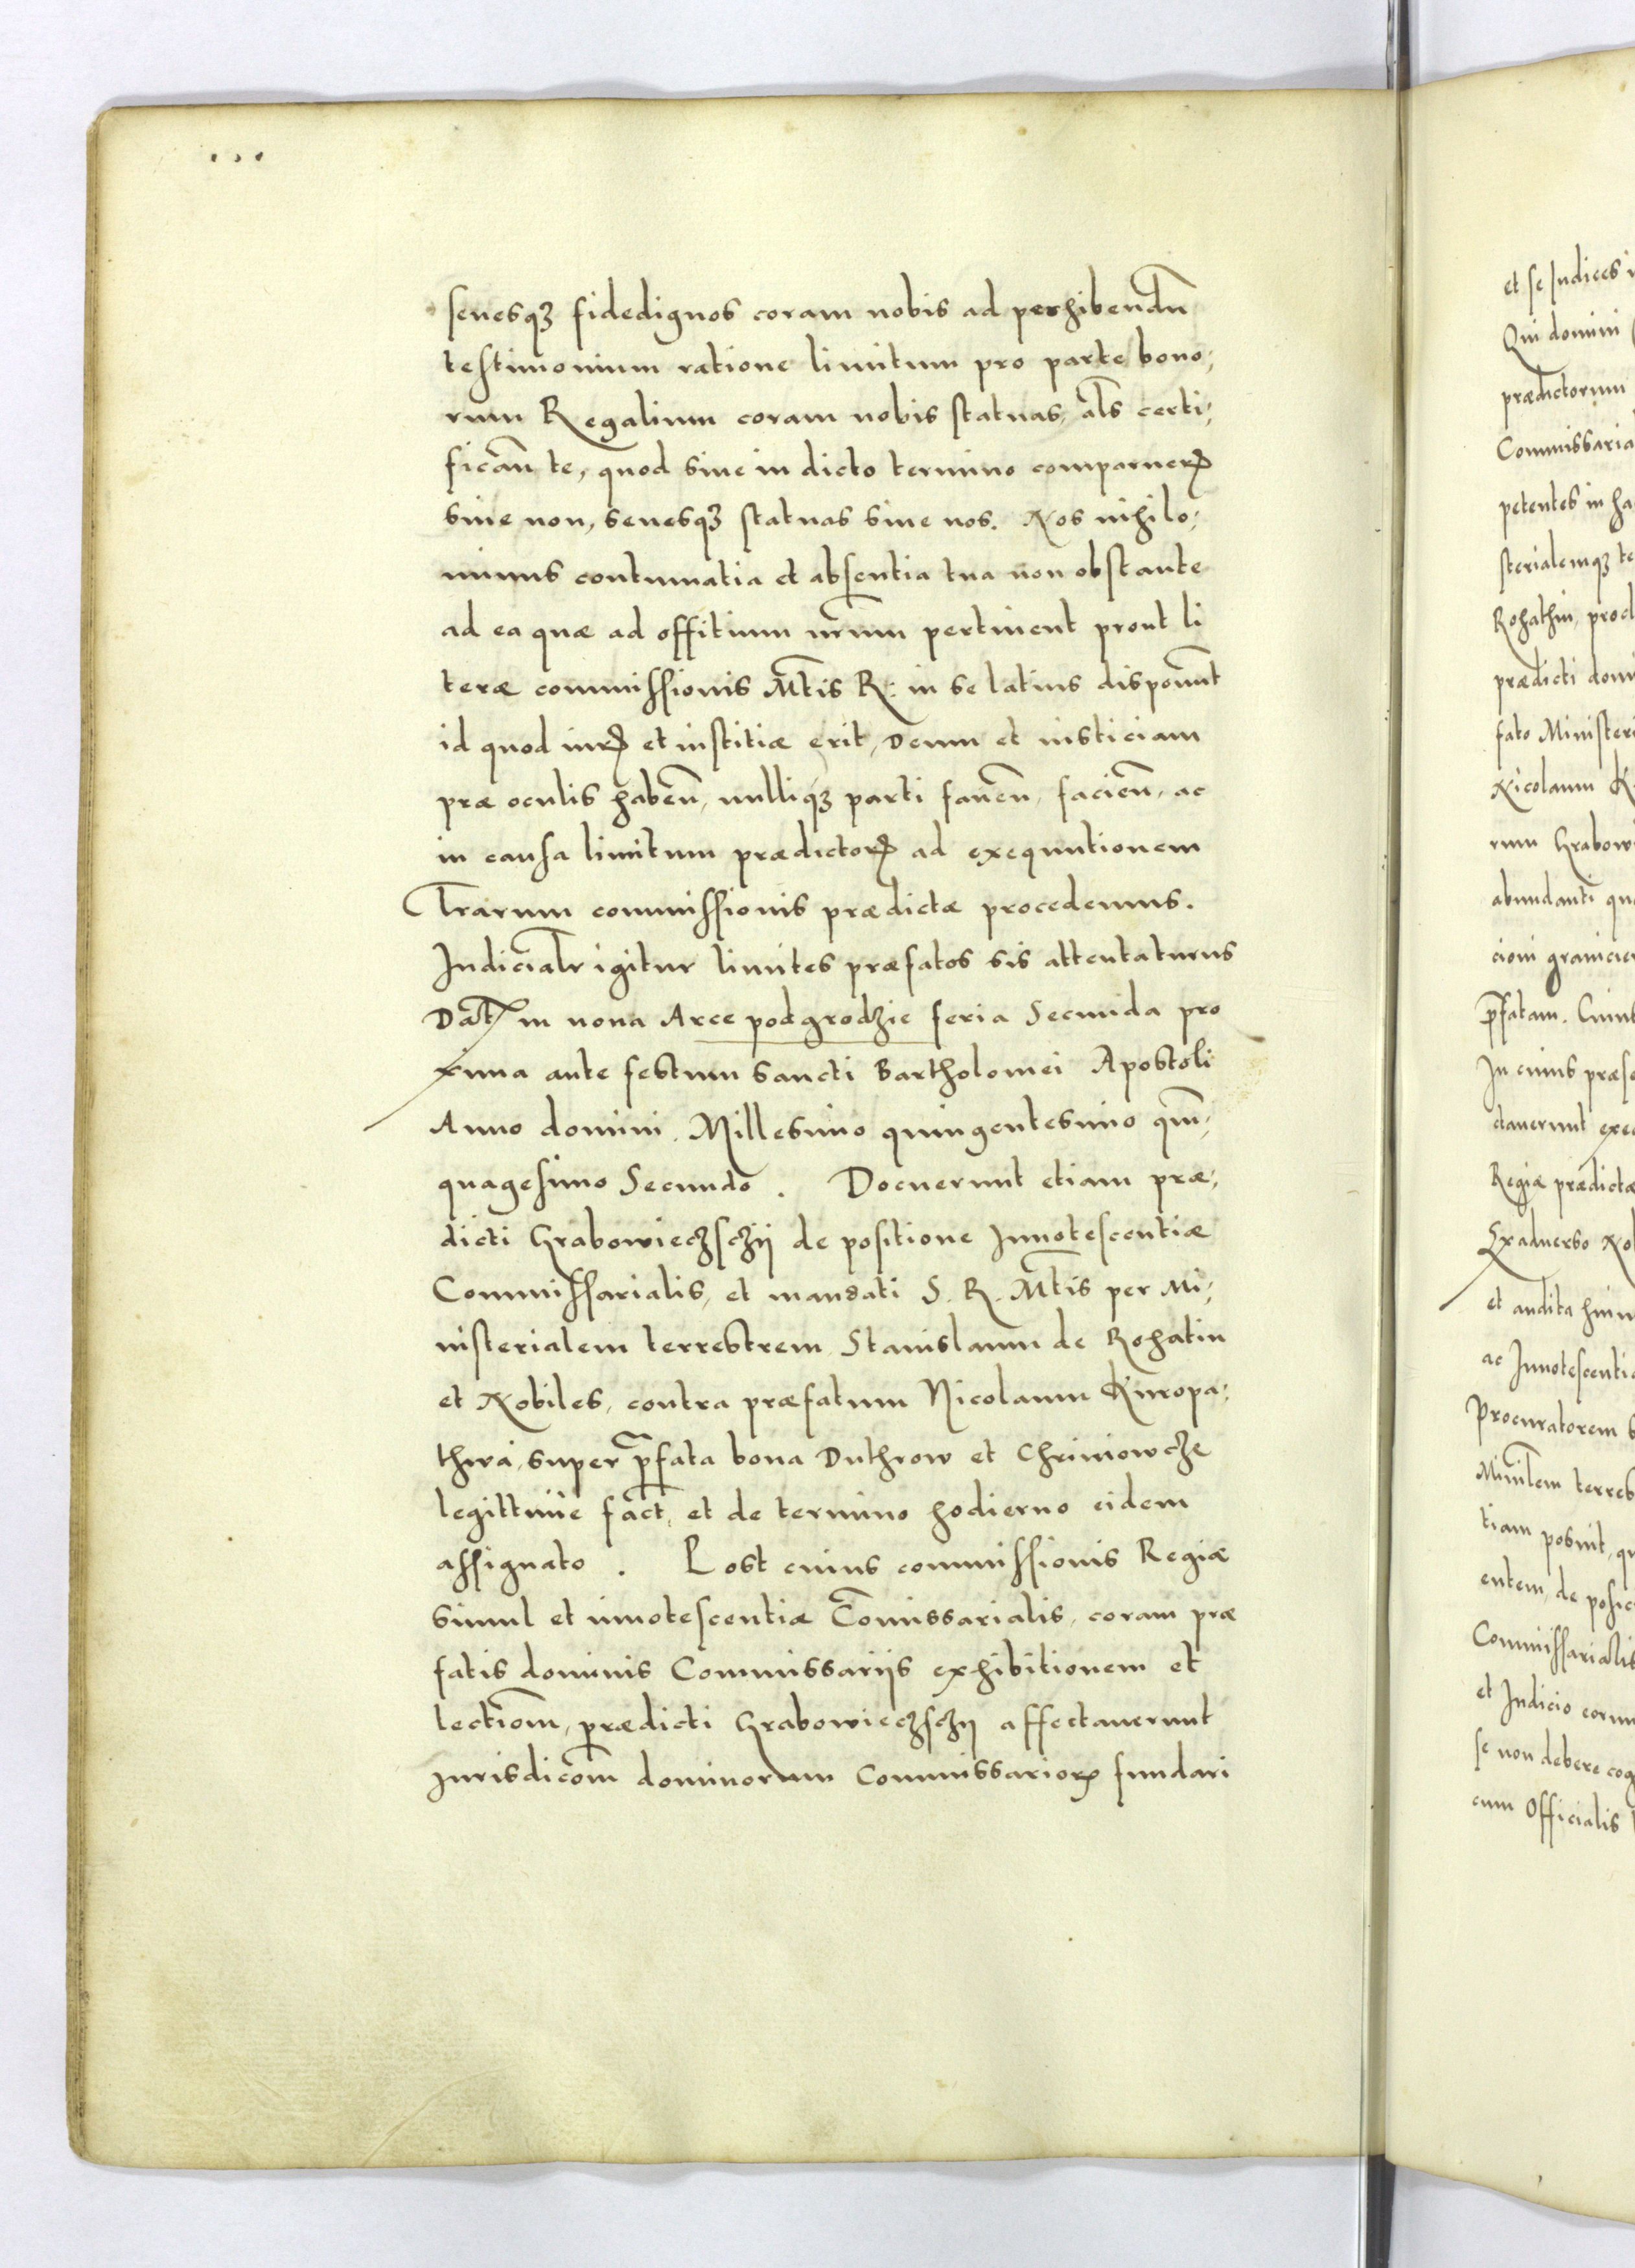 senesqꝫ fidedignos coram nobis ad perhibendū
testimonium ratione limitum pro parte bono,
rum Regalium coram nobis statuas, al̄s certi,
fican̄ te, quod siue in dicto termino comparueꝝ
siue non, senesqꝫ statuas siue nos. Nos nihilo,
minus contumatia et absentia tua non obstante
ad ea quæ ad offitium nr̄um pertinent prout li
teræ commissionis Mt̄is R: in se latius disponūt
id quod iuꝝ et iustitiæ erit, Deum et iusticiam
præ oculis haben̄, nulliqꝫ parti fauen̄, facien̄, ac
in causa limitum prædictoꝝ ad exequutionem
Lr̄arum commissionis prædictæ procedemus.
Iudicialr̄ igitur limites præfatos sis attentaturus
Dat̄ in noua Arce podgrodzie feria Secunda pro
xima ante festum Sancti Bartholomei Apostoli
Anno domini. Millesimo quingentesimo qūi,
quagesimo Secundo. Docuerunt etiam præ,
dicti Grabowieczsczÿ de positione Innotescentiæ
Commissarialis, et mandati S. R. Mt̄is per Mi,
nisterialem terrestrem Stanislaum de Rohatin
et Nobiles, contra præfatum Nicolaum Kuropa,
thwa, super p̄fata bona Duthrow et Chriniowcze
legittime fact̄, et de termino hodierno eidem
assignato. Post cuius commissionis Regiæ
simul et innotescentiæ Com̄issarialis, coram præ
fatis dominis Commissariis exhibitionem et
lectiom̄, prædicti Grabowieczsczÿ affectauerunt
Iurisdicom̄ dominorum Commissarioꝝ fundari
et se Iudices
Qui domini
prædictorum
Commissaria
petentes in ha
sterialemqꝫ te
Rohathin, prod
prædicti domi
fato Ministeri
Nicolaum K
rum Grabowi
abundanti qua
cioni granicie
p̄fatam. Cuius
In cuius præse
ctauerunt exe
Regiæ prædictæ
Exaduerso No
et audita huiu
ac Innotescentiæ
Procuratorem S
Minil̄em terrest
tiam posuit, qu
entem, de posic
Commissarialis
et Iudicio eorum
se non debere cog
cum Officialis